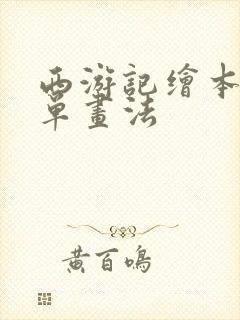 西游記繪本
單畫法
黃百鳴